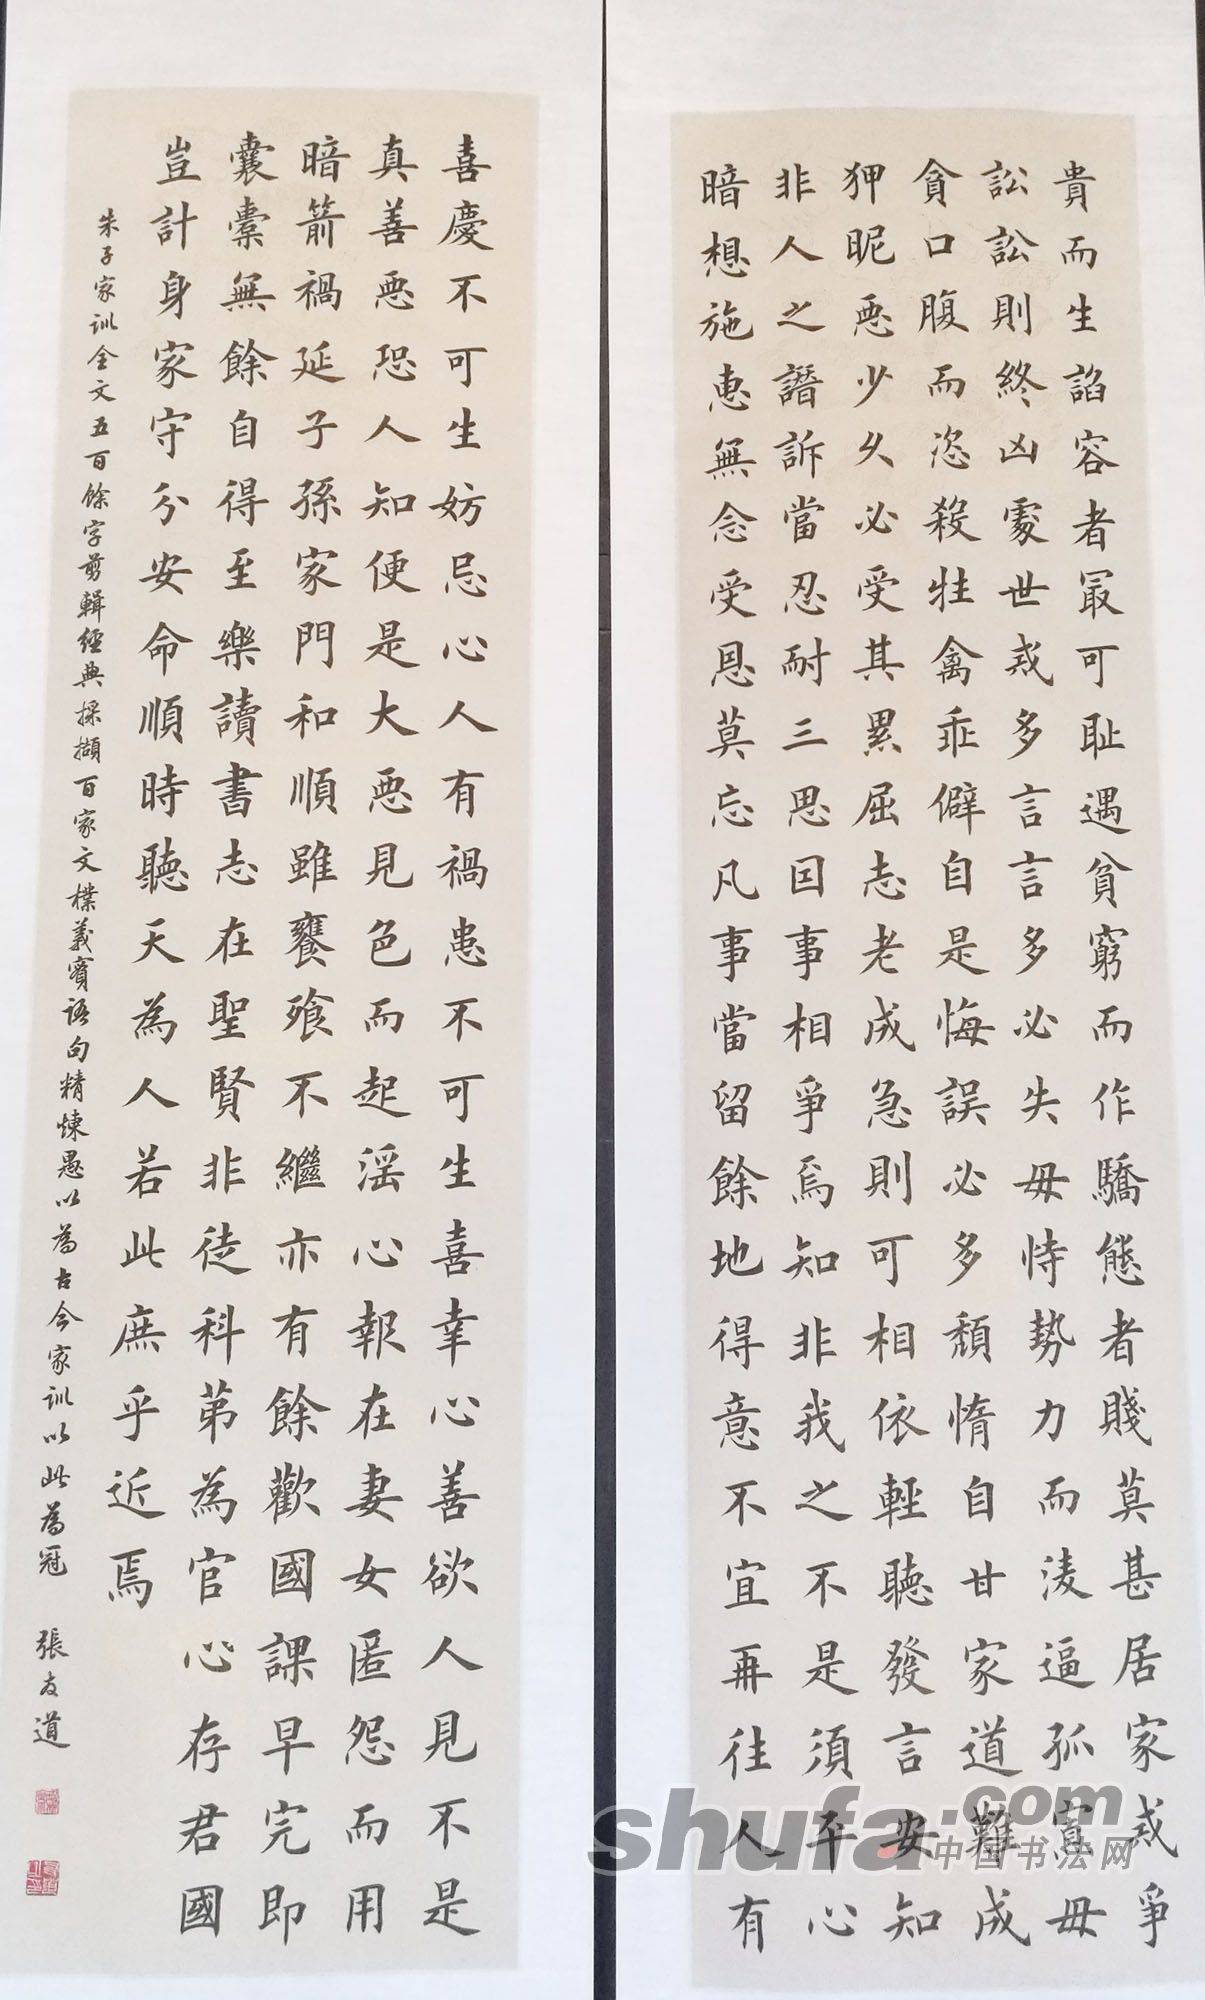 貴而生諂容者冣可耻遇貧窮而作驕態者賤莫甚居家戒爭
訟訟則終凶處世戒多言言多必失毋恃勢力而淩逼孤寡毋
貪口腹而恣殺牲禽乖僻自是悔誤必多頹惰自甘家道難成
狎昵惡少久必受其累屈志老成急則可相依輕聽發言安知
非人之譖訴當忍耐三思因事相爭焉知非我之不是須平心
暗想施惠無念受恩莫忘凡事當留餘地得意不宜再往人有
喜慶不可生妨忌心人有禍患不可生喜幸心善欲人見不是
真善惡恐人知便是大惡見色而起淫心報在妻女匿怨而用
暗箭禍延子孫家門和順雖饔飱不繼亦有餘歡國課早完即
囊橐無餘自得至樂讀書志在聖賢非徒科第為官心存君國
豈計身家守分安命順時聽天為人若此庶乎近焉
朱子家训全文五百餘字剪輯經典採擷百家文樸義賓语句精煉愚以為古今家训以此為冠 張友道
shufa.com
中国书法网